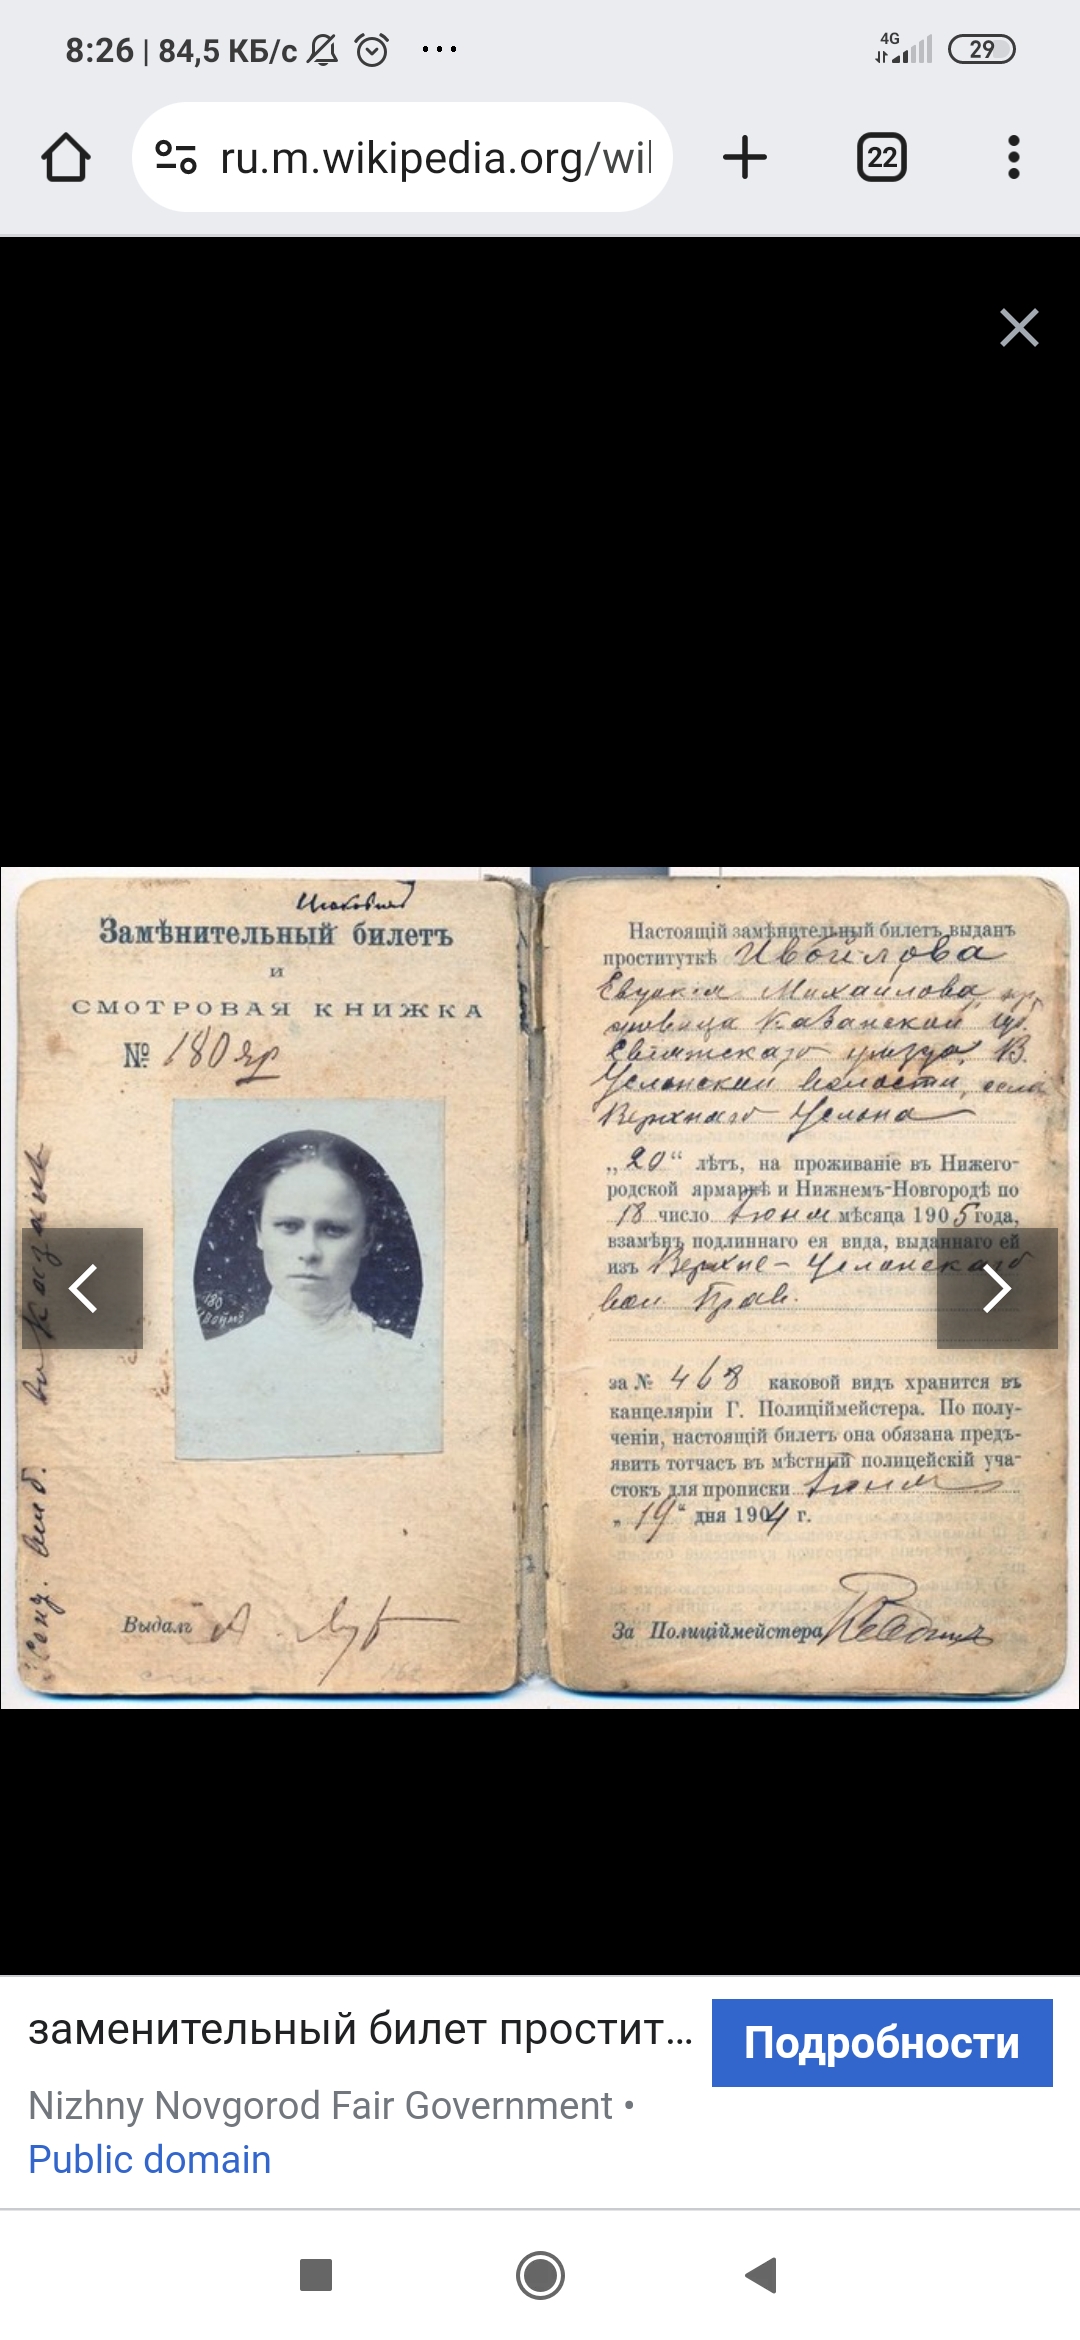 8:26 | 84,5 КБ/с ...
4G
29
ru.m.wikipedia.org/wil
22
Замѣнительный билетъ
и
СМОТРОВАЯ КНИЖКА
№ 180 яр
180
Выдалъ
Настоящій замѣнительный билетъ выданъ
проституткѣ Ивойлова
Евдокія Михайлова, кр
Казанской губ.
Свіяжскаго уѣзда, В.
Услонской волости, села
Верхняго Услона
„20“ лѣтъ, на проживаніе въ Нижего-
родской ярмаркѣ и Нижнемъ-Новгородѣ по
18 число Іюня мѣсяца 1905 года,
взамѣнъ подлиннаго ея вида, выданнаго ей
изъ Верхне-Услонскаго
вол. Прав.
за № 468 каковой видъ хранится въ
канцеляріи Г. Полиціймейстера. По полу-
ченіи, настоящій билетъ она обязана предъ-
явить тотчасъ въ мѣстный полицейскій уча-
стокъ для прописки Іюня
„19“ дня 1904 г.
За Полиціймейстера
заменительный билет простит...
Подробности
Nizhny Novgorod Fair Government •
Public domain